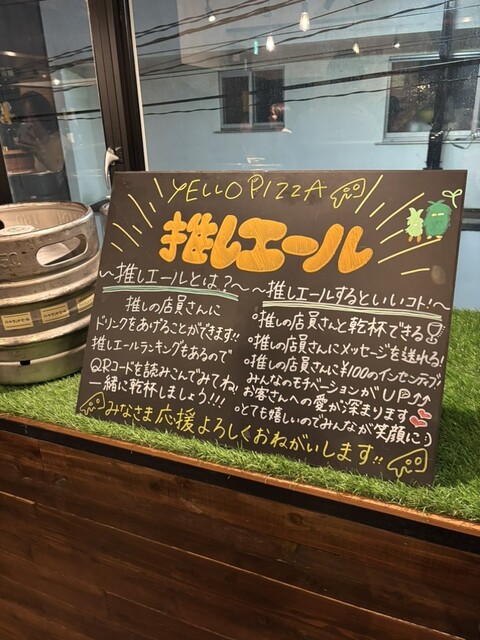 YELLO PIZZA
推しエール
〜推しエールとは?〜
推しの店員さんに
ドリンクをあげることができます!!
推しエールランキングもあるので
QRコードを読みこんでみてね!
一緒に乾杯しましょう!!!
〜推しエールするといいコト!〜
•推しの店員さんと乾杯できる
•推しの店員さんにメッセージを送れる!
•推しの店員さんに¥100のインセンティブ!
みんなのモチベーションがUP↑↑
お客さんへの愛が深まります
•とても嬉しいのでみんなが笑顔に:)
みなさま応援よろしくおねがいします!!